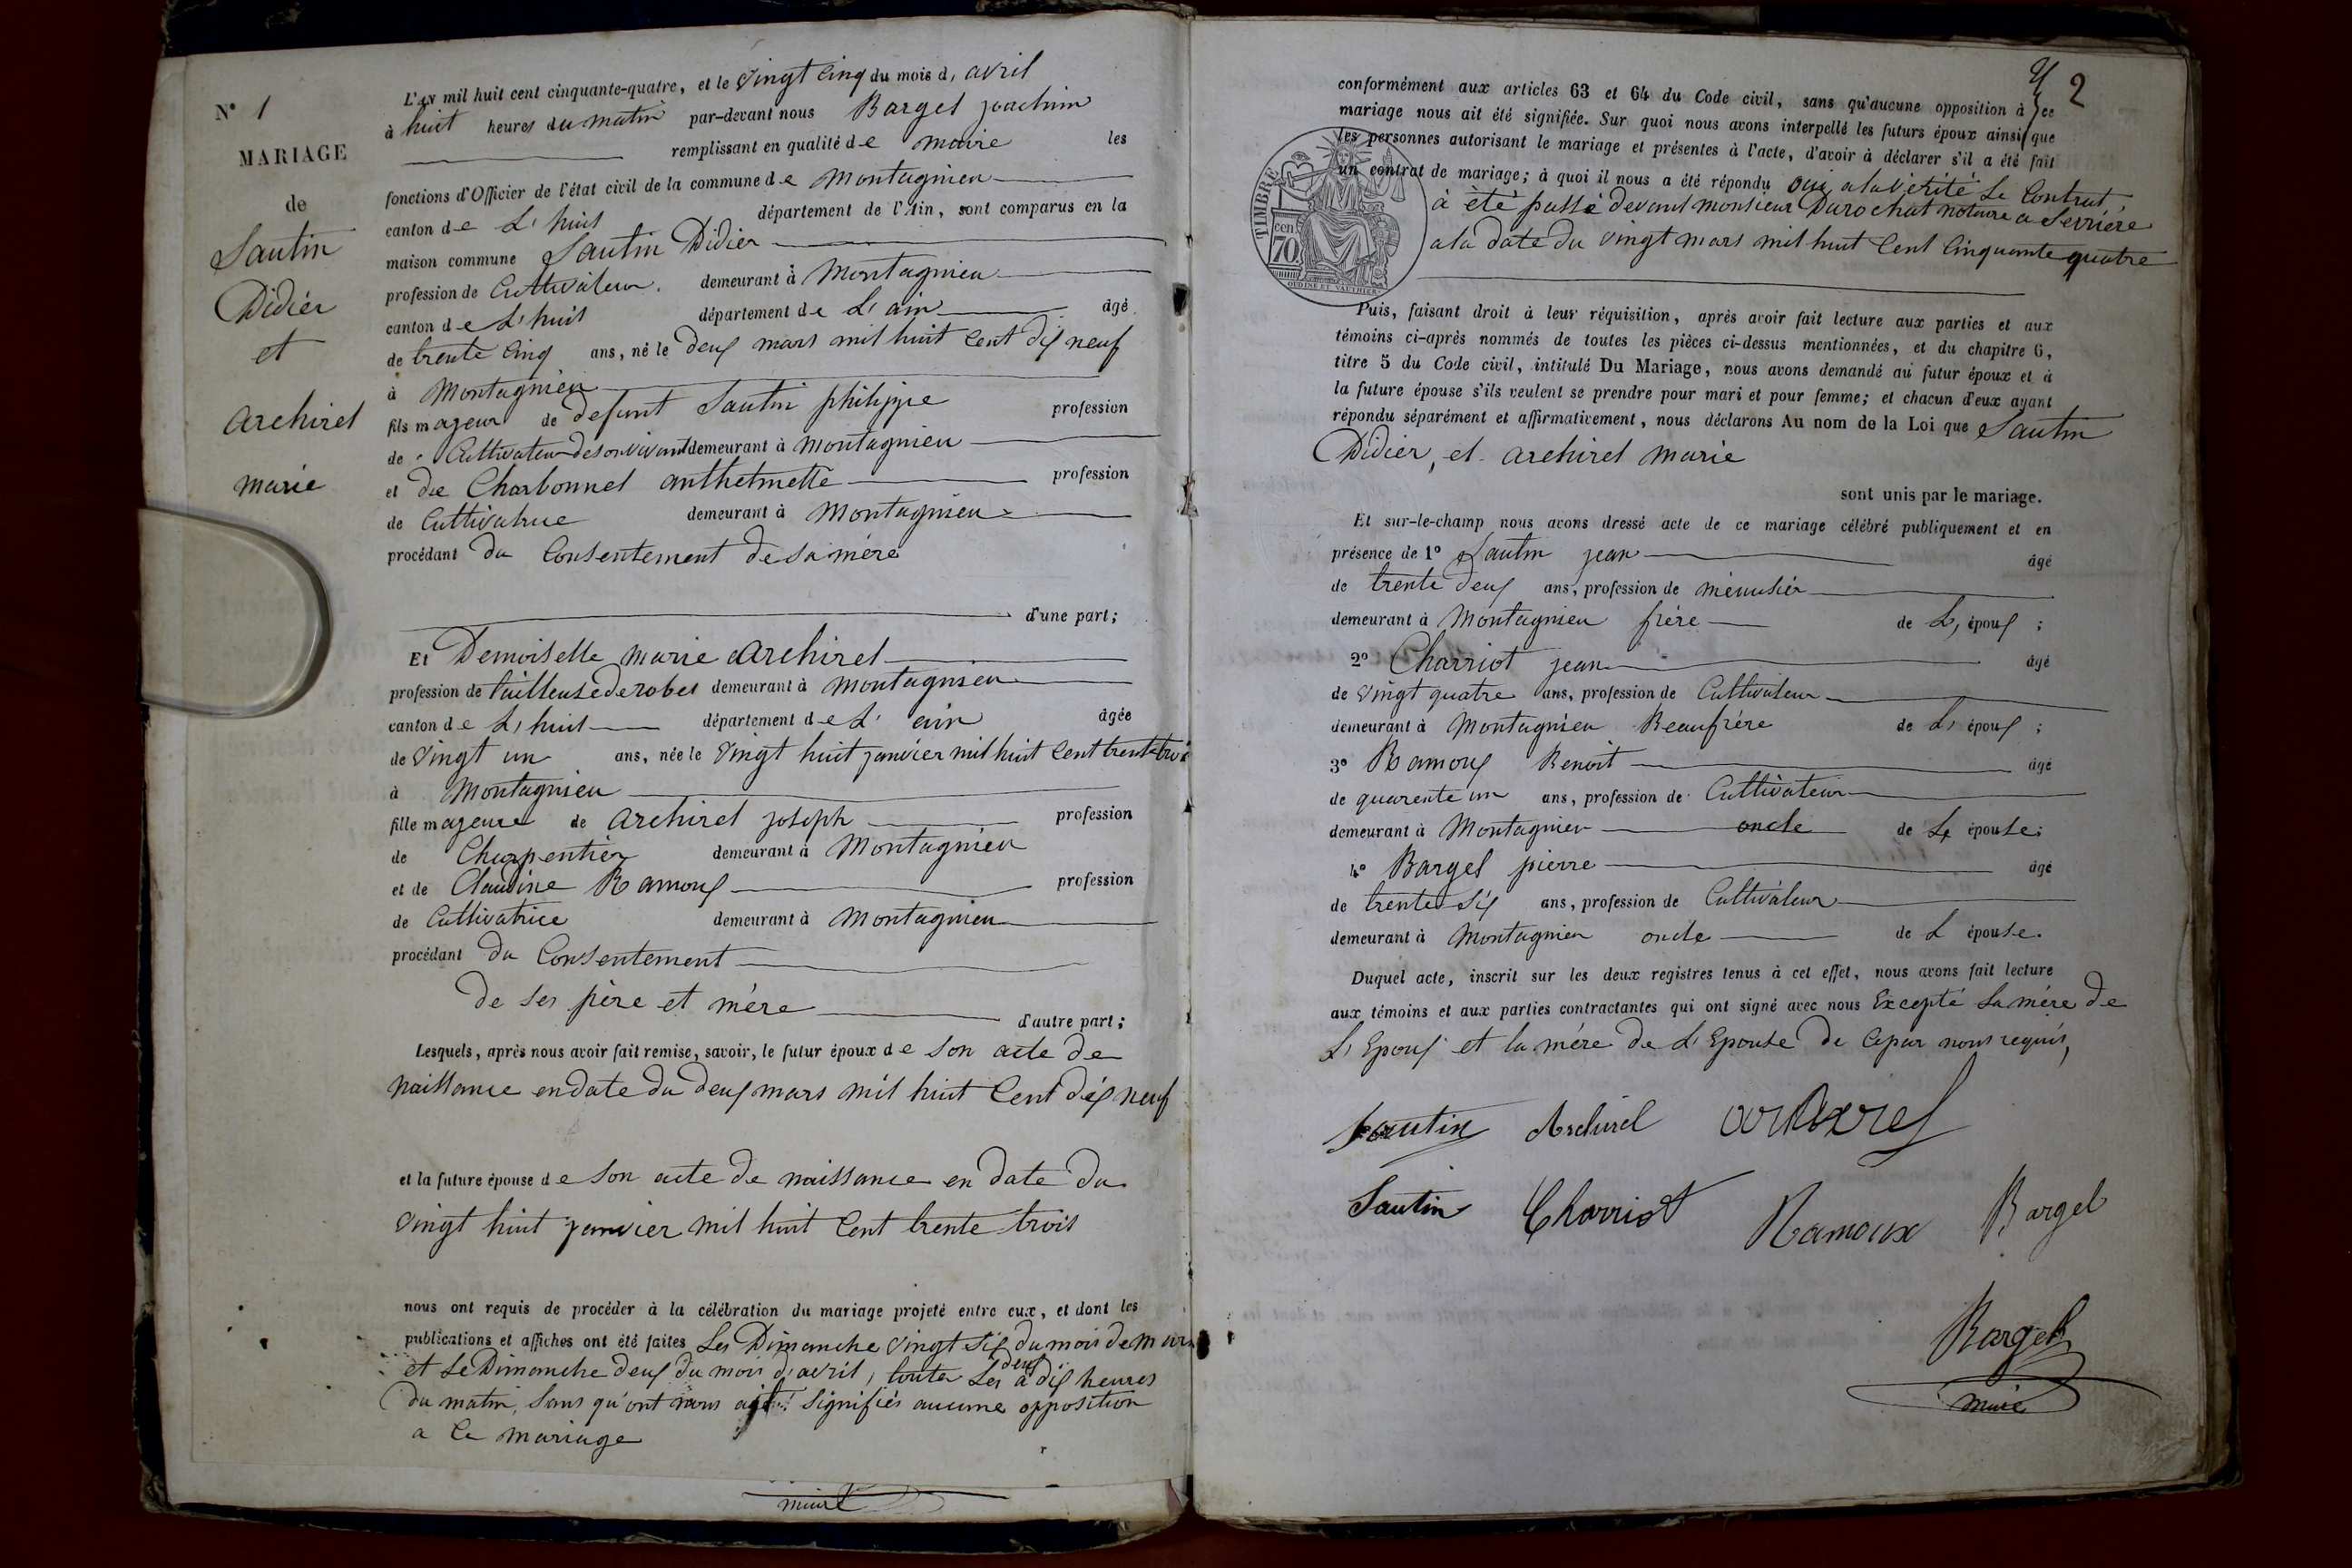 N° 1
MARIAGE
de
Sautin
Didier
et
archirel
marie
L'an mil huit cent cinquante-quatre, et le vingt cinq du mois d, avril
à huit heures du matin par-devant nous Bargel joachim
remplissant en qualité de maire les
fonctions d'Officier de l'état civil de la commune de montagnieu
canton de L'huis département de l'Ain, sont comparus en la
maison commune Sautin Didier
profession de Cultivateur. demeurant à montagnieu
canton de L'huis département de L'ain âgé
de trente cinq ans, né le deux mars mil huit cent dix neuf
à montagnieu
fils mageur de defunt Sautin philippe profession
de Cultivateur de son vivant demeurant à montagnieu
et de Charbonnel anthelmette profession
de Cultivatrice demeurant à montagnieu
procédant du Consentement de sa mère
d'une part;
Et Demoiselle marie archirel
profession de tailleuse de robes demeurant à montagnieu
canton de L'huis département de L'ain âgée
de vingt un ans, née le vingt huit janvier mil huit cent trente trois
à montagnieu
fille mageure de archirel joseph profession
de Charpentier demeurant à montagnieu
et de Claudine Ramoux profession
de Cultivatrice demeurant à montagnieu
procédant du Consentement
de ses père et mère
d'autre part;
Lesquels, après nous avoir fait remise, savoir, le futur époux de son acte de
naissance en date du deux mars mil huit cent dix neuf
et la future épouse de son acte de naissance en date du
vingt huit janvier mil huit cent trente trois
nous ont requis de procéder à la célébration du mariage projeté entre eux, et dont les
publications et affiches ont été faites Les Dimanche vingt six du mois de mars
et le Dimanche deux du mois d'avril, toutes Les deux à dix heures
du matin, sans qu'ont nous signifiés aucune opposition
a ce mariage
maire
2
conformément aux articles 63 et 64 du Code civil, sans qu'aucune opposition à ce
mariage nous ait été signifiée. Sur quoi nous avons interpellé les futurs époux ainsi que
les personnes autorisant le mariage et présentes à l'acte, d'avoir à déclarer s'il a été fait
un contrat de mariage; à quoi il nous a été répondu oui, a la vérité Le Contrat
à été passé devant monsieur Durochat notaire a Serriére
a la date du vingt mars mil huit Cent Cinquante quatre
TIMBRE
70 cen
OUDINÉ ET VAUTHIER
Puis, faisant droit à leur réquisition, après avoir fait lecture aux parties et aux
témoins ci-après nommés de toutes les pièces ci-dessus mentionnées, et du chapitre 6,
titre 5 du Code civil, intitulé Du Mariage, nous avons demandé au futur époux et à
la future épouse s'ils veulent se prendre pour mari et pour femme; et chacun d'eux ayant
répondu séparément et affirmativement, nous déclarons Au nom de la Loi que Sautin
Didier, et archirel marie
sont unis par le mariage.
Et sur-le-champ nous avons dressé acte de ce mariage célébré publiquement et en
présence de 1° Sautin jean âgé
de trente deux ans, profession de ménusier
demeurant à montagnieu frère de L, époux ;
2° Charriot jean âgé
de vingt quatre ans, profession de Cultivateur
demeurant à montagnieu Beaufrère de L' époux ;
3° Ramoux Benoit âgé
de quarente un ans, profession de Cultivateur
demeurant à montagnieu oncle de L' épouse;
4° Bargel pierre âgé
de trente six ans, profession de Cultivateur
demeurant à montagnieu oncle de L épouse.
Duquel acte, inscrit sur les deux registres tenus à cet effet, nous avons fait lecture
aux témoins et aux parties contractantes qui ont signé avec nous Excepté La mère de
L'Epoux et la mère de L'Epouse de Cepar nous requis,
Sautin Archirel archirel
Sautin Charriot Ramoux Bargel
Bargel
maire